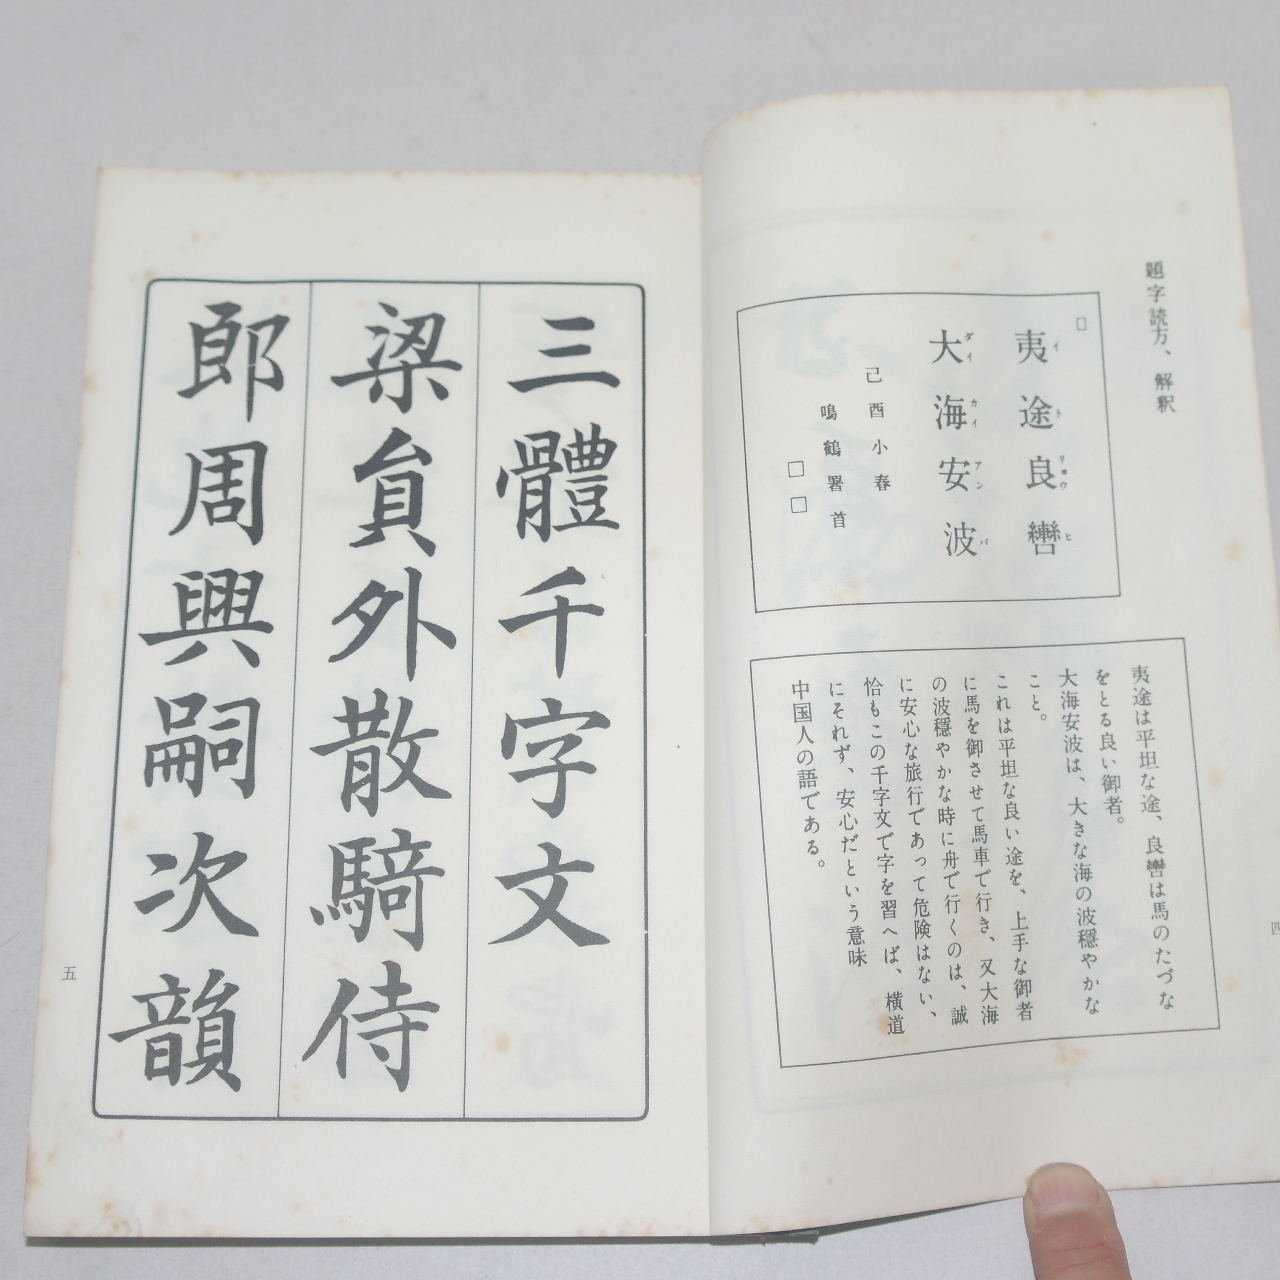 題字読方、解釈
夷途良轡
イトリョウヒ
大海安波
ダイカイアンパ
己酉小春
鳴鶴署首
夷途は平坦な途、良轡は馬のたづな
をとる良い御者。
大海安波は、大きな海の波穏やかな
こと。
これは平坦な良い途を、上手な御者
に馬を御させて馬車で行き、又大海
の波穏やかな時に舟で行くのは、誠
に安心な旅行であって危険はない、
恰もこの千字文で字を習へば、横道
にそれず、安心だという意味
中国人の語である。
四
三體千字文
梁貟外散騎侍
郎周興嗣次韻
五